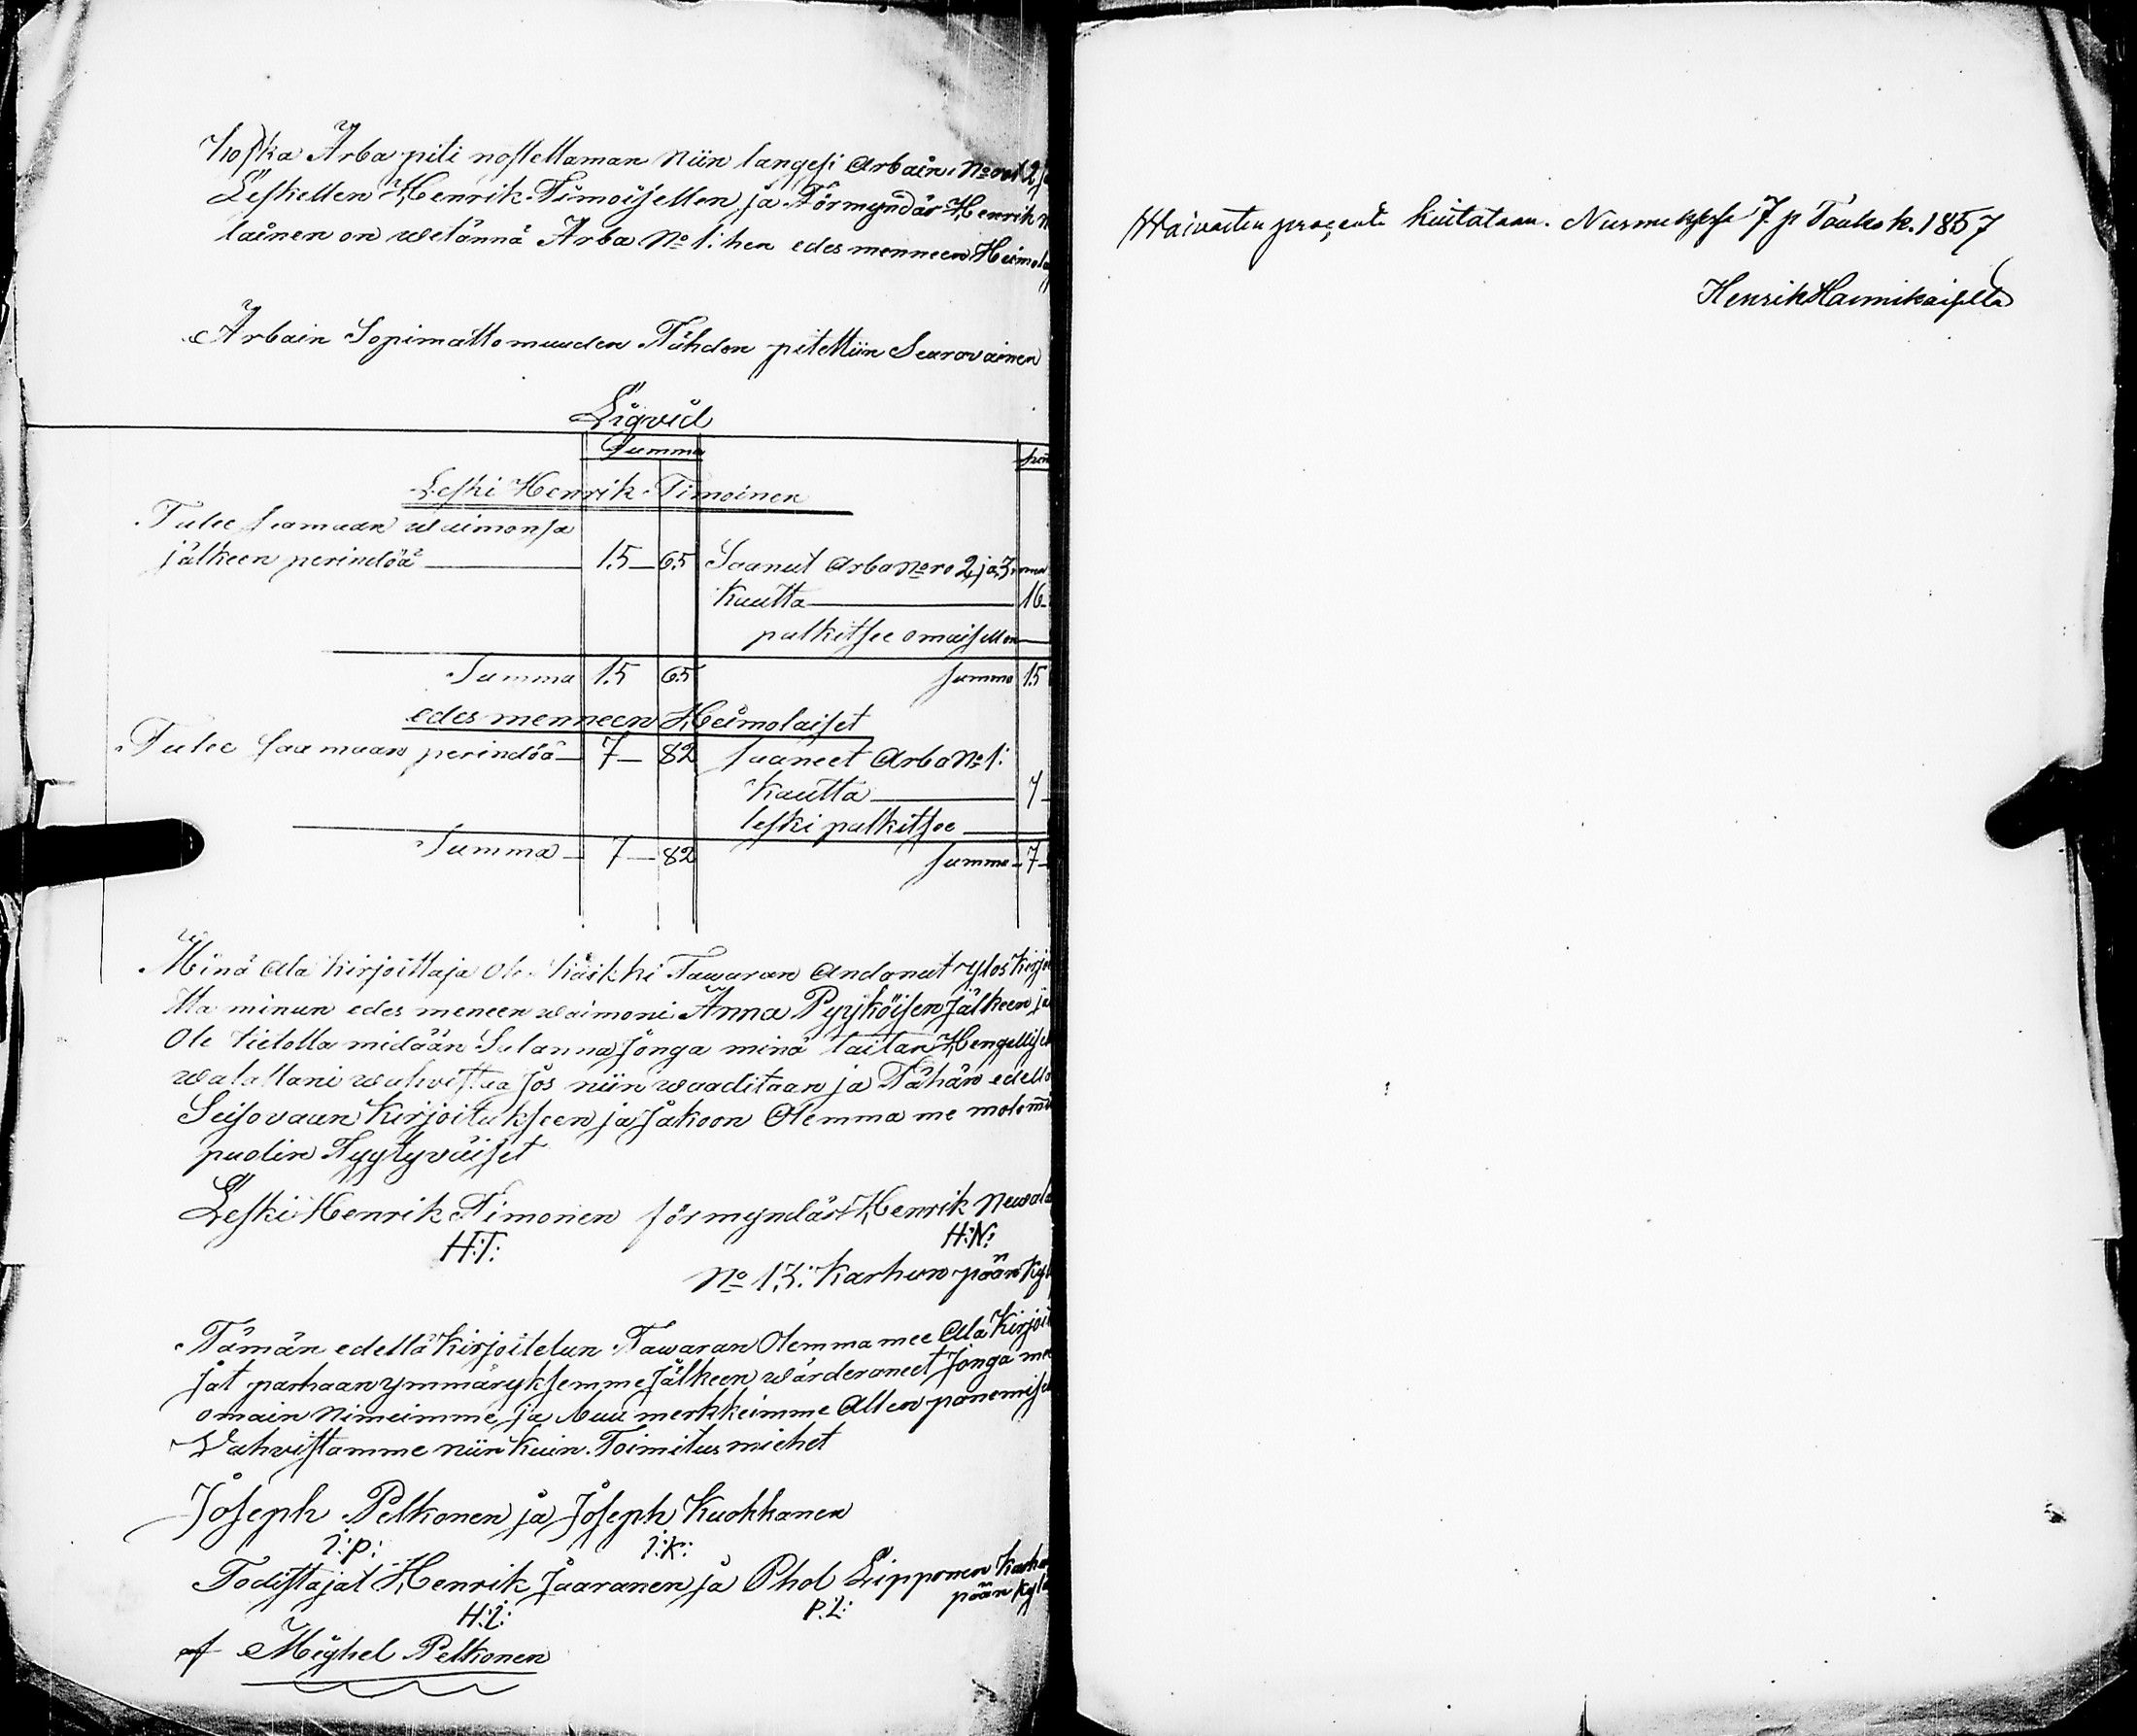 Koska Arba piti nostettaman Niin langesi Arbain No rot 2 ja
Leskellen Henrik Timoisellen ja Förmyndär Henrik N
lainen on wetännä Arba No 1: hen edes menneen Heimola
Arbain Sopimattomuuden Tähden pitettiin Seurovainen
Liqvid
Summa
Leski Henrik Timoinen
Tulee saamaan waimonsa
jälkeen perindöä 15 65 Saanut Arba No ro 2 ja 3
Kautta 16
palkitsee omaisillen
Summa 15 65 Summa 15
edes menneen Heimolaiset
Tulee saamaan perindöä 7 82 saaneet Arba No 1:
Kautta 7
leski palkitsee
Summa 7 82 Summa 7
Minä ala kirjoittaja Ole kaikki Tawaran Andanut ylos kirjoi
tta minun edes meneen waimoni Anna Pyyköisen jälkeen ja
Ole tietolla midään Salanna Jonga minä taitan Hengellisel
walallani wahvistaa Jos niin waaditaan ja Tähän edellä
Seisovaan Kirjoitukseen ja Jakoon Olemma me molemi
puolin Tyytyväiset
Leski Henrik Timonen förmyndär Henrik Newala
H:T: H:N:
No 13: Karhun pään Kyl
Tämän edellä kirjoitetun Tawaran Olemma mee Ala Kirjoit
jat parhaan ymmäryksemme Jälkeen wärderaneet Jonga me
omain Nimeimme ja buu merkkeimme Allen panemisel
Vahvistamme niin kuin Toimitus miehet
Joseph Pelkonen ja Joseph Kuokkanen
I:P: I:K:
Todistajat Henrik Jaaranen ja Phol Lipponen Karhu
H:I: P:L: pään kylä
af Mighel Pelkonen
Waivasten prosenti kuitataan. Nurmeksessa 7 p Touko k. 1857
Henrik Hannikaiselta